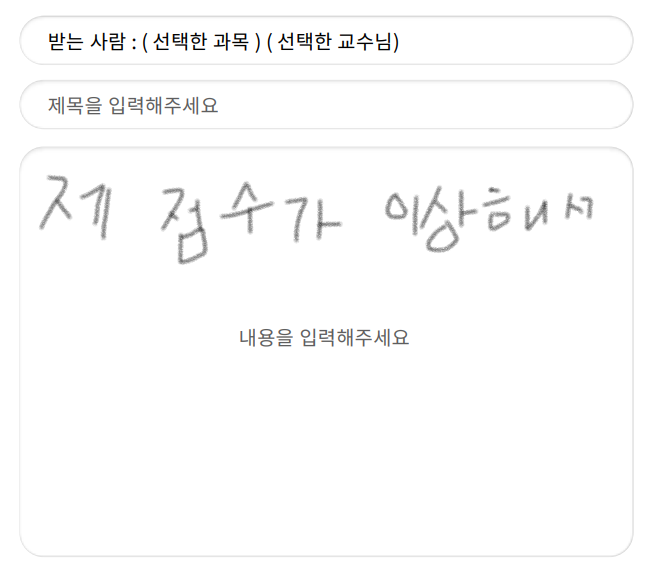 받는 사람 : ( 선택한 과목 ) ( 선택한 교수님)
제목을 입력해주세요
제 점수가 이상해서
내용을 입력해주세요